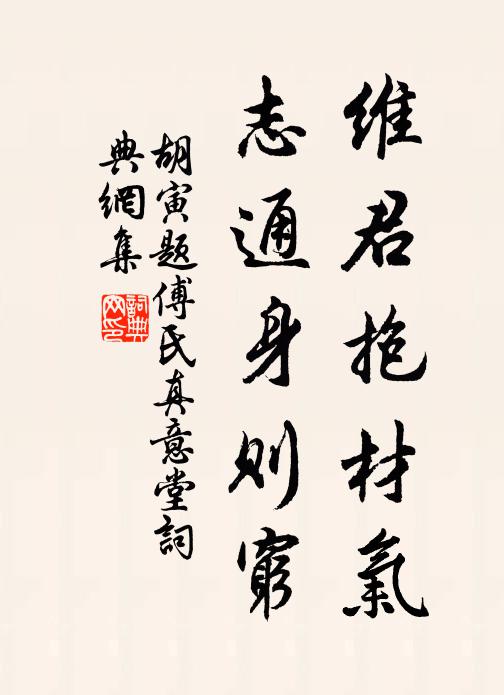 維君抱材氣
志通身則窮
胡寅題傅氏真意堂詞
典網集
詞典
网印